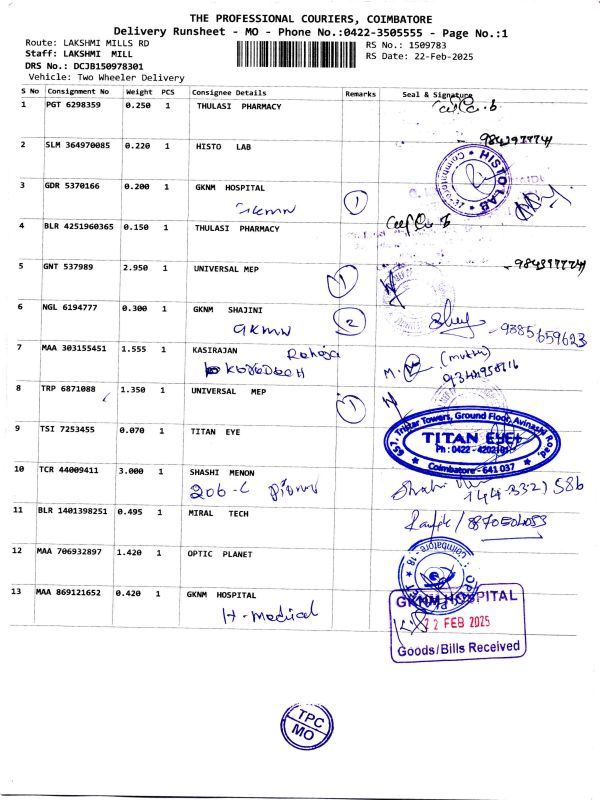 THE PROFESSIONAL COURIERS, COIMBATORE
Delivery Runsheet - MO - Phone No.:0422-3505555 - Page No.:1
Route: LAKSHMI MILLS RD
RS No.: 1509783
Staff: LAKSHMI MILL
RS Date: 22-Feb-2025
DRS No.: DCJB150978301
Vehicle: Two Wheeler Delivery
S No Consignment No Weight PCS Consignee Details Remarks Seal & Signature
1 PGT 6298359 0.250 1 THULASI PHARMACY
2 SLM 364970085 0.220 1 HISTO LAB
HISTO LAB
Coimbatore
3 GDR 5370166 0.200 1 GKNM HOSPITAL
GKMN 1
4 BLR 4251960365 0.150 1 THULASI PHARMACY
5 GNT 537989 2.950 1 UNIVERSAL MEP
1
6 NGL 6194777 0.300 1 GKNM SHAJINI
GKMN 2 9385659623
7 MAA 303155451 1.555 1 KASIRAJAN
8 TRP 6871088 1.350 1 UNIVERSAL MEP
1
9 TSI 7253455 0.070 1 TITAN EYE
657, Tristar Towers, Ground Floor, Avinashi Road,
TITAN EYE+
Ph : 0422 - 4202101
Coimbatore - 641 037
10 TCR 44009411 3.000 1 SHASHI MENON
206-C
11 BLR 1401398251 0.495 1 MIRAL TECH
12 MAA 706932897 1.420 1 OPTIC PLANET
Coimbatore - 18
13 MAA 869121652 0.420 1 GKNM HOSPITAL
H-medical
GKNM HOSPITAL
22 FEB 2025
Goods/Bills Received
TPC
MO